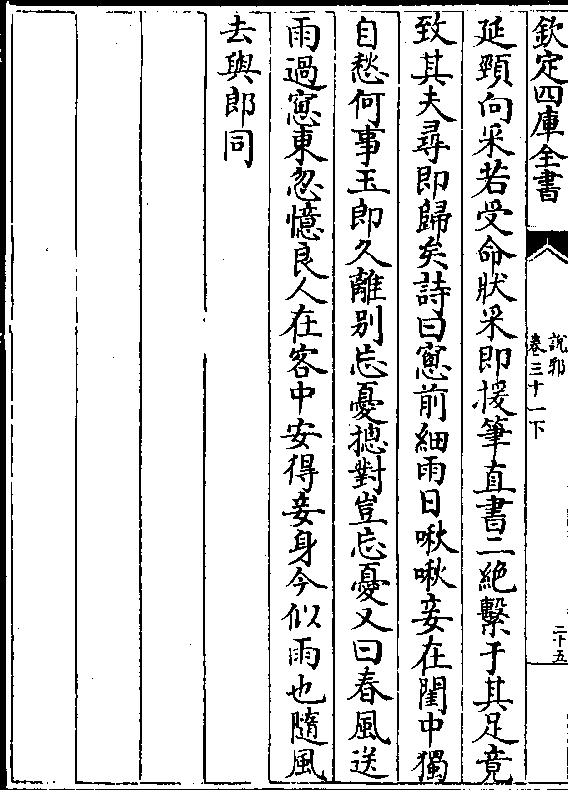 欽定四庫全書
說郛
卷三十一下
二十五
延頸向采若受命狀采即援筆直書二絶繫于其足竟
致其夫尋即歸矣詩曰窻前細雨日啾啾妾在閨中獨
自愁何事玉郎久離别忘憂摠對豈忘憂又曰春風送
雨過窻東忽憶良人在客中安得妾身今似雨也隨風
去與郎同